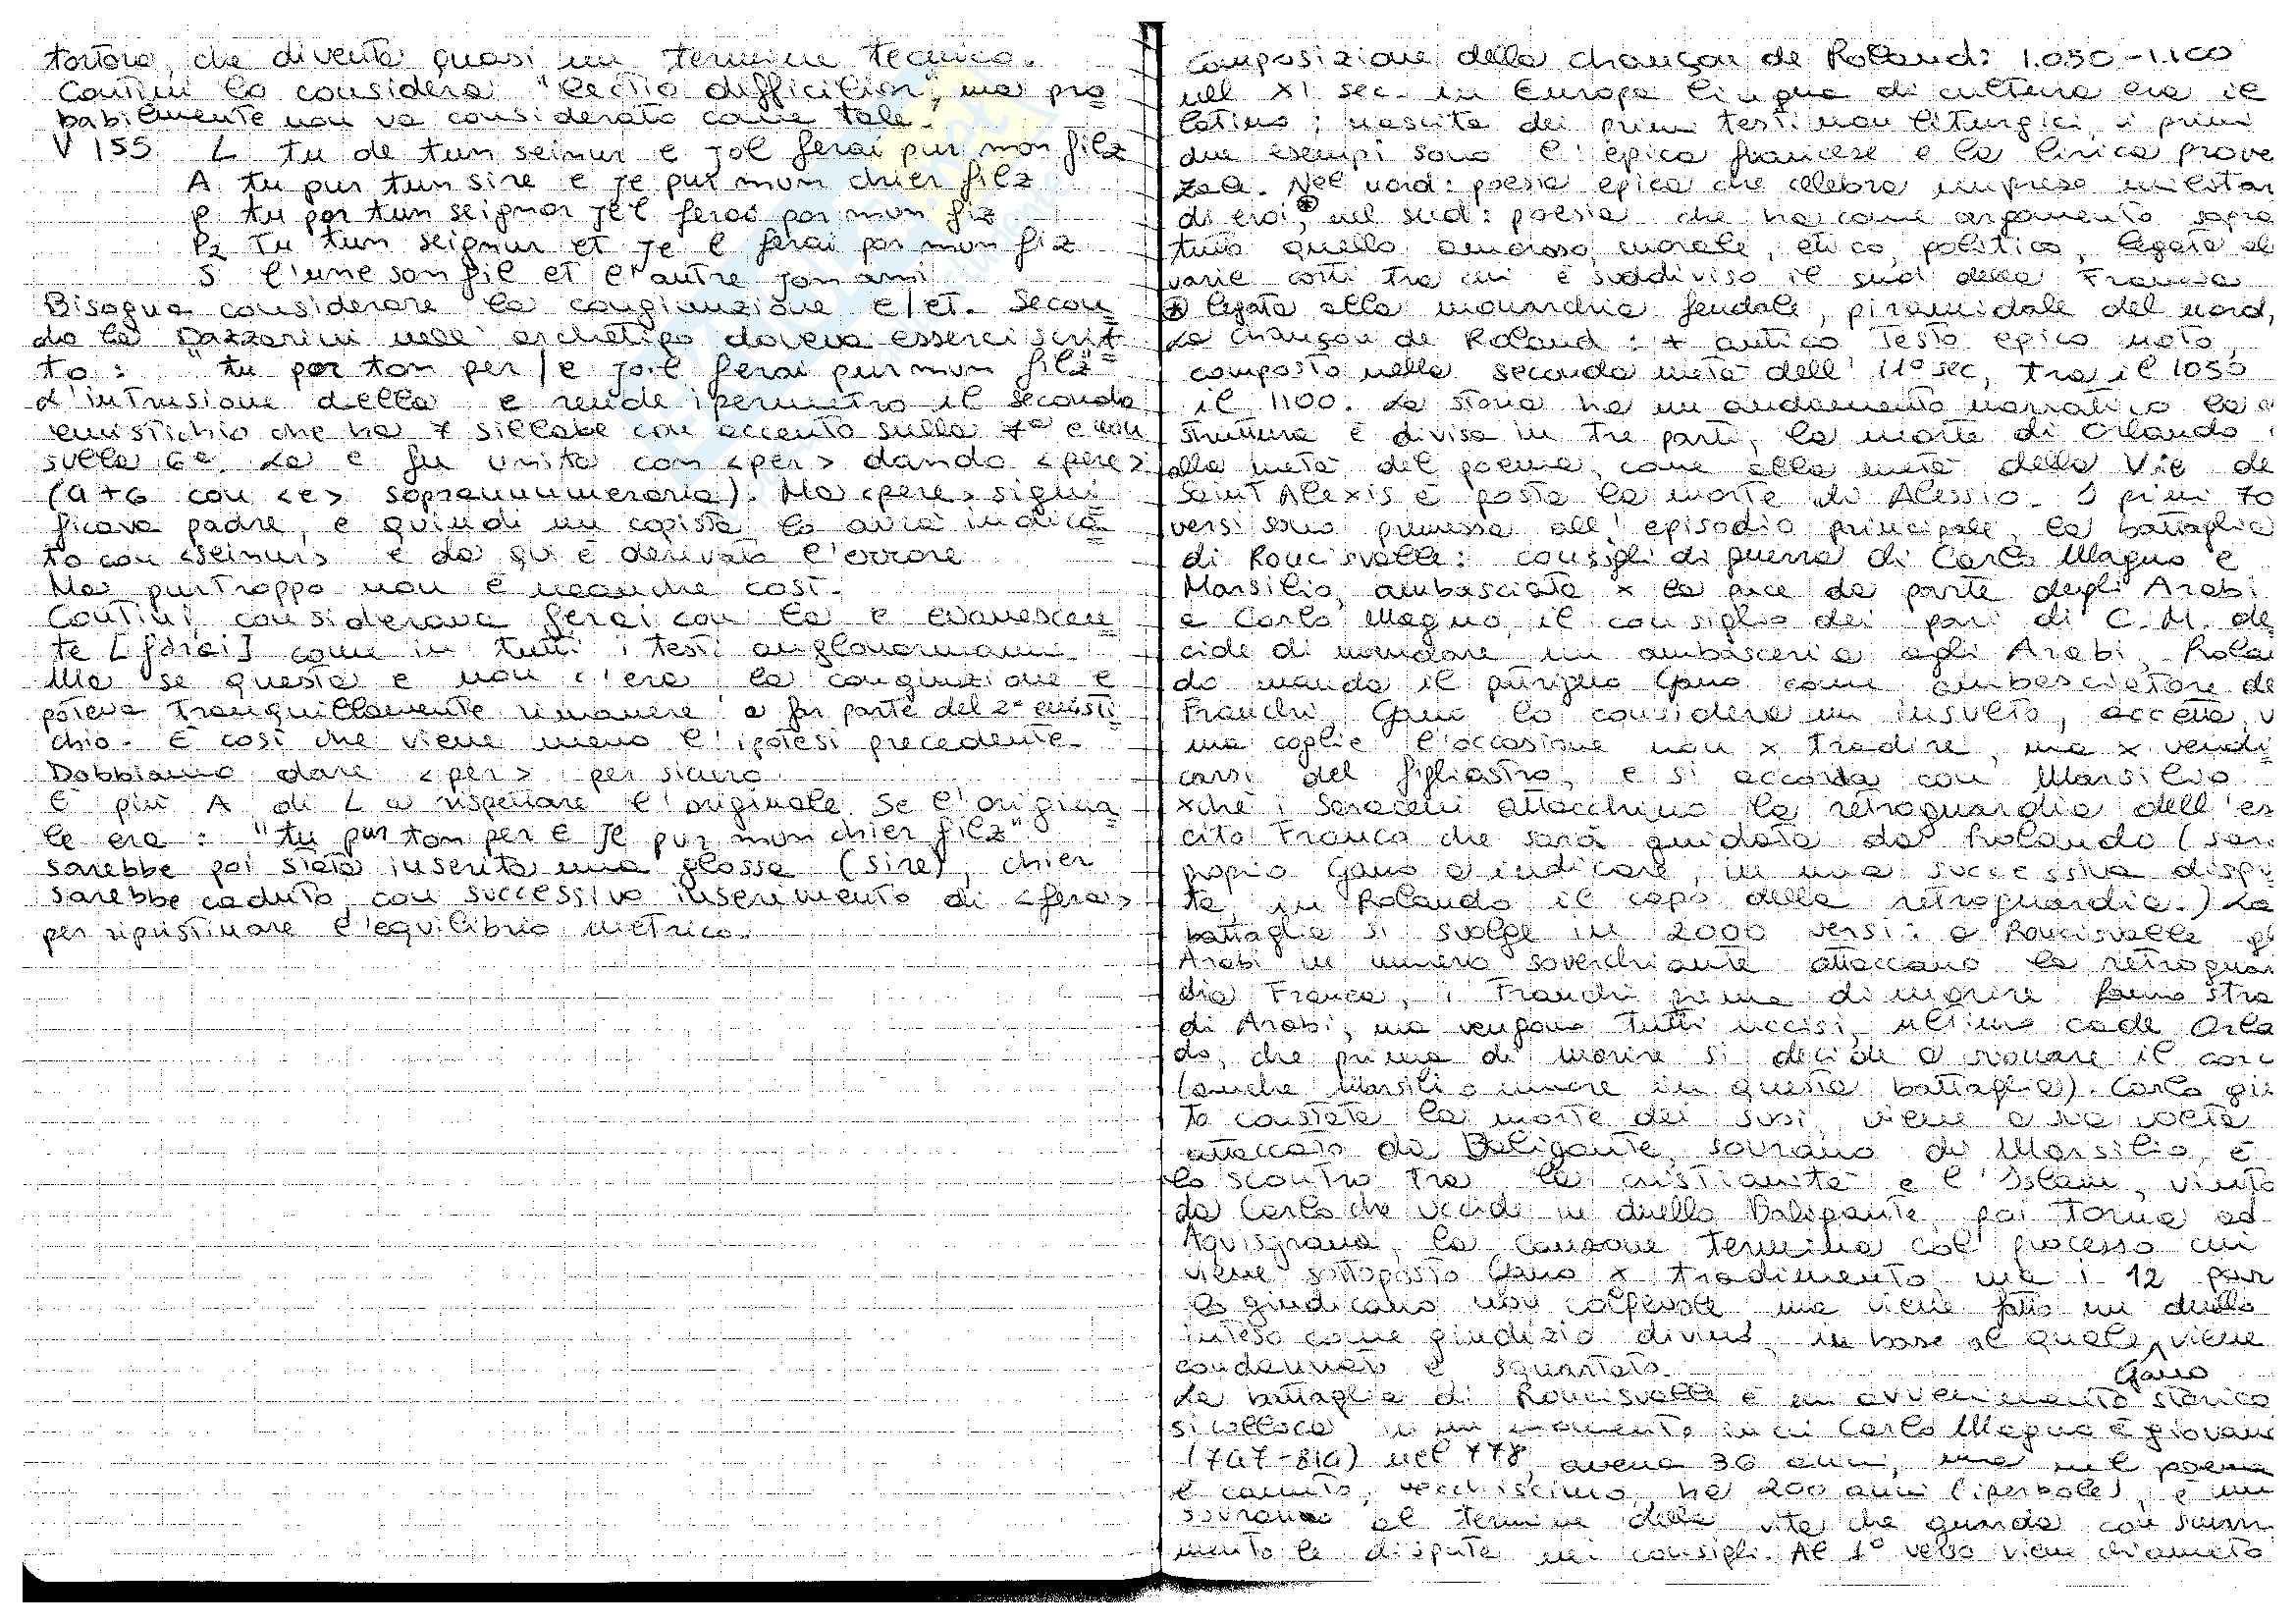 tortore, che diventa quasi un termine tecnico.
Contini lo considera "lectio difficilior", ma pro
babilmente non va considerato come tale.
V 155 L tu de tun seinur e jol ferai pur mon filz
A tu pur tun sire e je pur mun chier filz
P tu por tun seignor jel ferai por mun fiz
P2 Tu tun seignur et je l ferai por mun fiz
S l'une son fil et l'autre son ami
Bisogna considerare la congiunzione e/et. Secon
do la Dazzarini nell'archetipo doveva esserci scrit
to: "tu por ton per/e jo.l ferai pur mun filz"
L'intrusione della e rende ipermetro il secondo
emistichio che ha 7 sillabe con accento sulla 7ª e non
sulla 6ª. La e fu unita con <per> dando <pere>
(4+6 con <e> soprannumeraria). Ma <pere> signi
ficava padre, e quindi un copista lo avrà indica
to con <seinur> e da qui è derivato l'errore
Ma purtroppo non è neanche così.
Contini considerava ferai con la e evanescen
te [fərai] come in tutti i testi anglonormanni.
Ma se questa e non c'era la congiunzione e
poteva tranquillamente rimanere a far parte del 2° emisti
chio. È così che viene meno l'ipotesi precedente.
Dobbiamo dare <per> per sicuro.
È più A di L a rispettare l'originale. Se l'origina
le era: "tu pur ton per e je pur mun chier filz"
sarebbe poi stata inserita una glossa (sire), chier
sarebbe caduto con successivo inserimento di <ferai>
per ripristinare l'equilibrio metrico.
Composizione della chançon de Roland: 1.050-1.100
nell XI sec. in Europa lingua di cultura era il
latino; nascita dei primi testi non liturgici, i primi
due esempi sono l'epica francese e la lirica prove
zale. Nel nord: poesia epica che celebra imprese militar
di eroi, ⊛ nel sud: poesia che ha come argomento sopra
tutto quello amoroso, morale, etico, politico, legata al
varie corti tra cui è suddiviso il sud della Francia
⊛ legata alla monarchia feudale, piramidale del nord,
La Chançon de Roland: + antico testo epico noto,
composto nella seconda metà dell'11° sec, tra il 1050
il 1100. La storia ha un andamento narrativo la
struttura è divisa in tre parti, la morte di Orlando
alla metà del poema, come alla metà della Vie de
Saint Alexis è posta la morte di Alessio. I primi 70
versi sono premessa all'episodio principale, la battaglia
di Roncisvalle: consigli di guerra di Carlo Magno e
Marsilio, ambasciata x la pace da parte degli Arabi
a Carlo Magno, il consiglio dei pari di C.M. de
cide di mandare un ambasceria agli Arabi, Rola
do manda il patrigno Gano come ambasciatore de
Franchi, Gano lo considera un insulto, accetta,
ma coglie l'occasione non x tradire, ma x vendi
carsi del figliastro, e si accorda con Marsilio
xchè i Saraceni attacchino la retroguardia dell'es
cito Franco che sarà guidata da Rolando (sarà
proprio Gano a indicare, in una successiva dispu
ta, in Rolando il capo della retroguardia.) La
battaglia si svolge in 2000 versi: a Roncisvalle gl
Arabi in numero soverchiante attaccano la retroguar
dia Franca, i Franchi prima di morire fanno stra
di Arabi, ma vengono tutti uccisi, ultimo cade Orla
do, che prima di morire si decide a suonare il corn
(anche Marsilio muore in questa battaglia). Carlo giu
to constata la morte dei suoi, viene a sua volta
attaccato da Baligante, sovrano di Marsilio, è
lo scontro tra la cristianità e l'Islam, vinto
da Carlo che uccide in duello Baligante, poi torna ad
Aquisgrana, la canzone termina col processo cui
viene sottoposto Gano x tradimento ma i 12 pari
lo giudicano non colpevole ma viene fatto un duello
inteso come giudizio divino, in base al quale ^ viene
Gano
condannato e squartato.
La battaglia di Roncisvalle è un avvenimento storico
si colloca in un momento in cui Carlo Magno è giovane
(747-814) nel 778, aveva 30 anni, ma nel poema
è canuto, vecchissimo, ha 200 anni (iperbole), è un
sovrano al termine della vita che guarda con
mento le dispute nei consigli. Al 1° verso viene chiamato